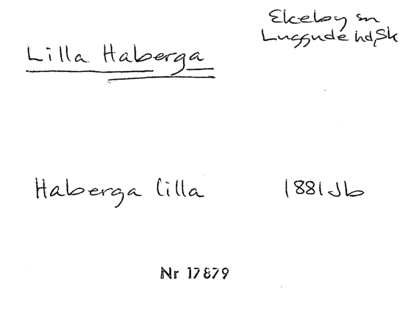 Ekeby sn
Luggude hd, Sk
Lilla Haberga
Haberga lilla 1881 Jb
Nr 17879